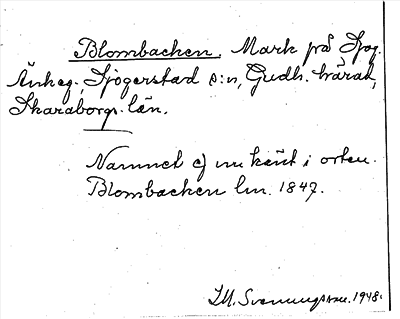 Blombacken. Mark på Sjog.
Änkeg. Sjogerstad s:n, Gudh. härad,
Skaraborgs län.
Namnet ej nu känt i orten.
Blombacken lm. 1847.
I.M. Svenungsson. 1948.